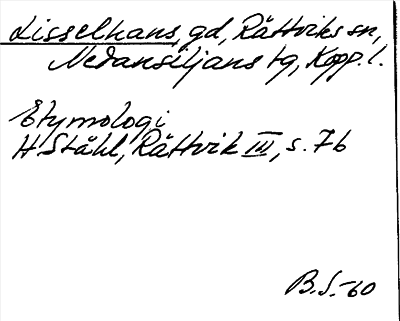 Lisselhans, gd, Rättviks sn,
Nedansiljans tg, Kopp. l.
Etymologi
H Ståhl, Rättvik III, s. 76
B.S.-60